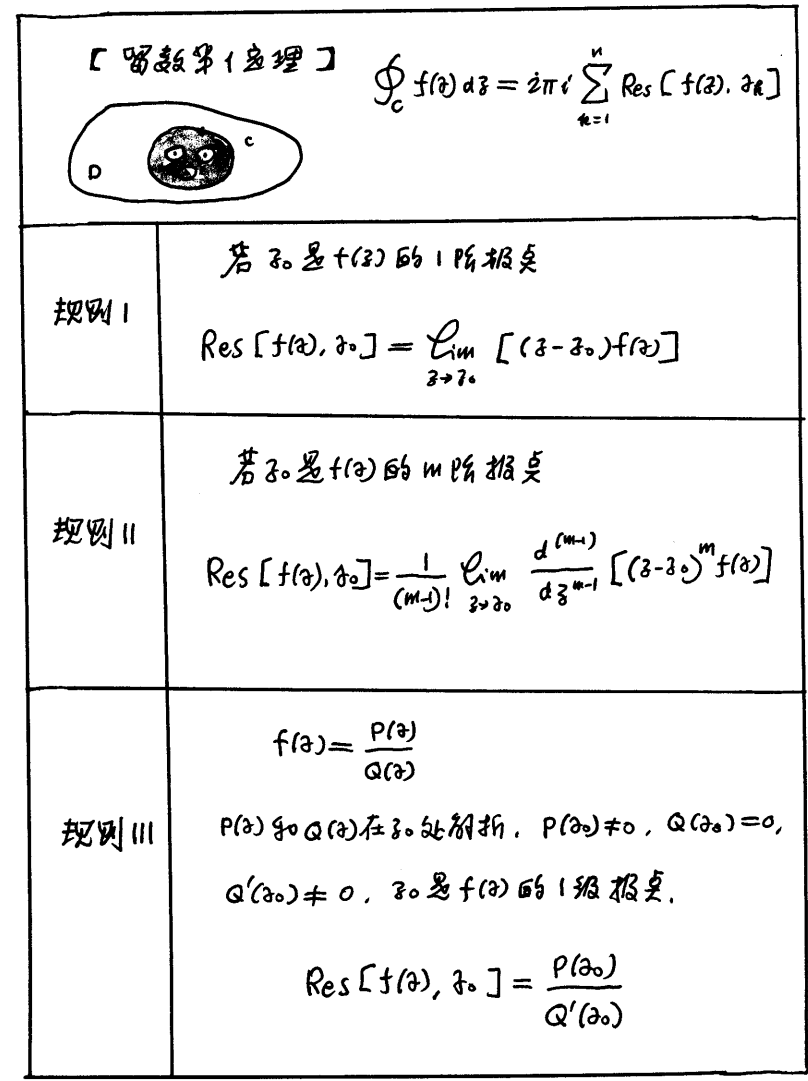 【留数第1定理】 ∮_C f(z)dz = 2πi ∑_{k=1}^{n} Res[f(z), z_k]
D C
规则 I
若 z₀ 是 f(z) 的 1 阶极点
Res[f(z), z₀] = lim_{z→z₀} [(z-z₀)f(z)]
规则 II
若 z₀ 是 f(z) 的 m 阶极点
Res[f(z), z₀] = \frac{1}{(m-1)!} lim_{z→z₀} \frac{d^{(m-1)}}{dz^{m-1}} [(z-z₀)^m f(z)]
规则 III
f(z) = \frac{P(z)}{Q(z)}
P(z) 和 Q(z) 在 z₀ 处解析, P(z₀)≠0, Q(z₀)=0,
Q'(z₀)≠0, z₀ 是 f(z) 的 1 级极点.
Res[f(z), z₀] = \frac{P(z₀)}{Q'(z₀)}